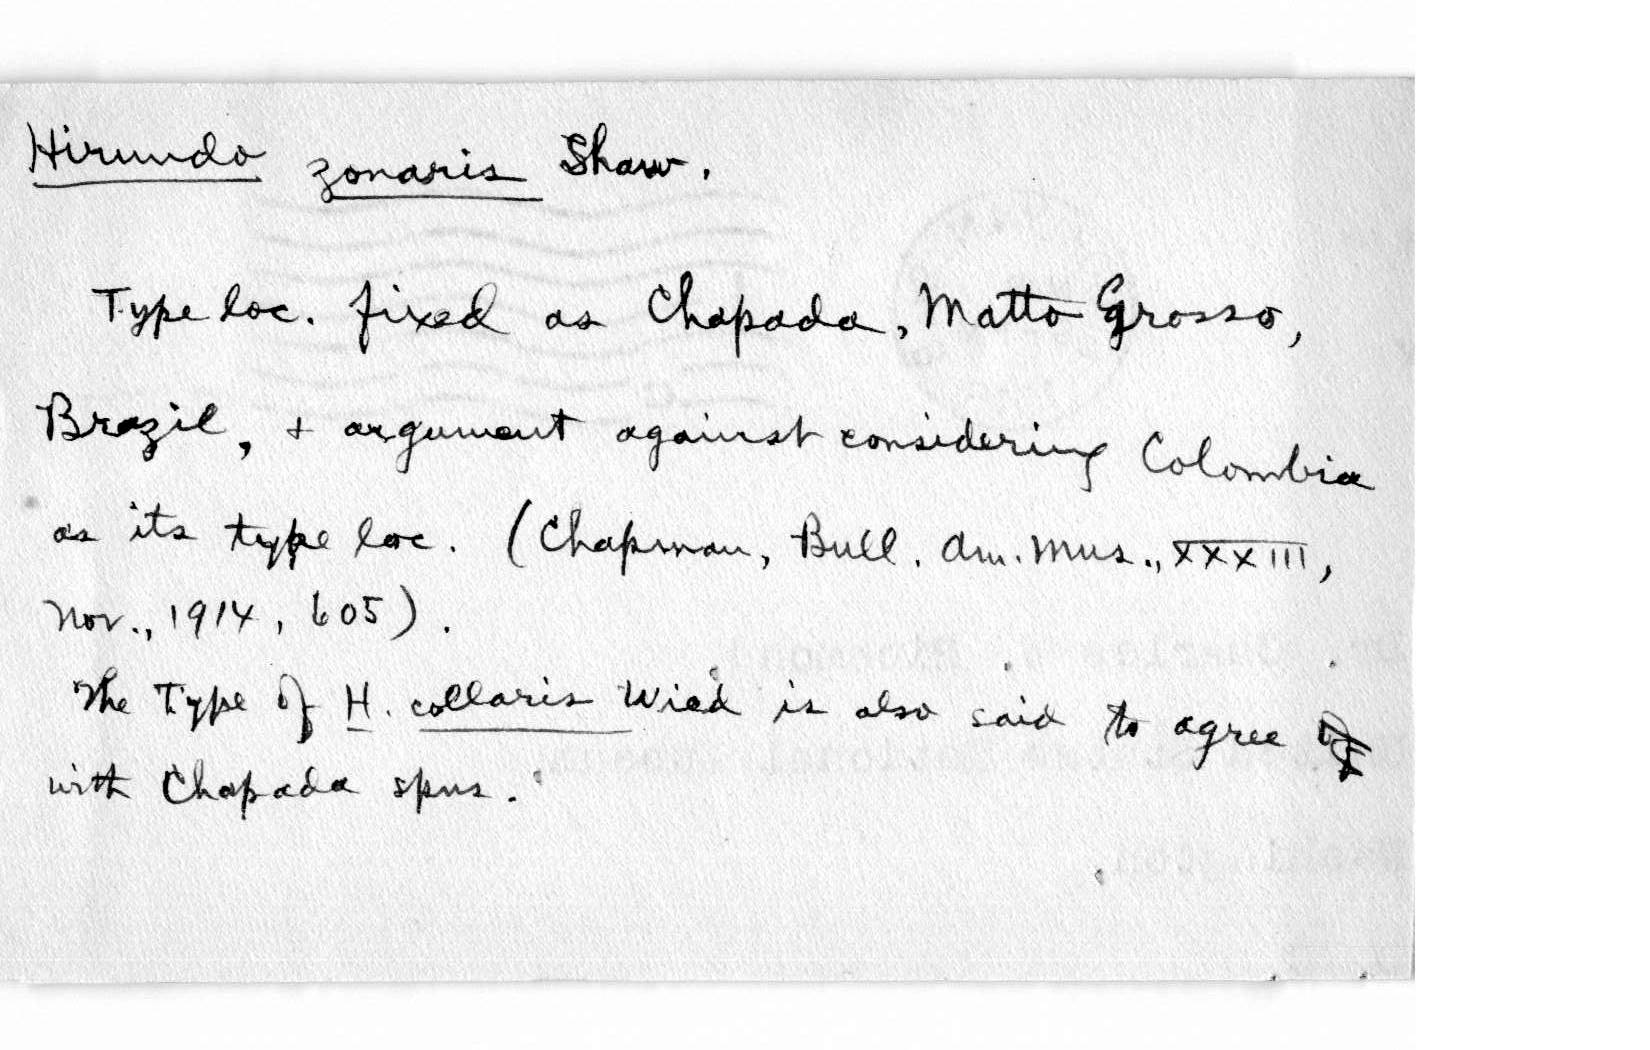 Hirundo zonaris Shaw.
Type loc. fixed as Chapada, Matto Grosso,
Brazil, + argument against considering Colombia
as its type loc. (Chapman, Bull. Am. Mus., XXXIII,
Nov., 1914, 605).
The Type of H. collaris Wied is also said to agree
with Chapada spms.